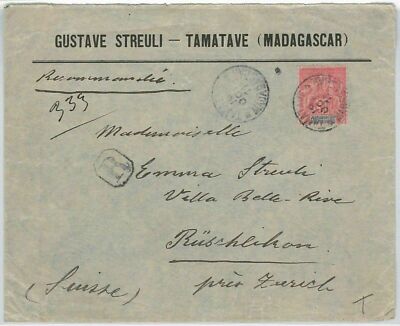 GUSTAVE STREULI — TAMATAVE (MADAGASCAR)
Recommandée
333
Mademoiselle
R
Emma Streuli
Villa Belle-Rive
Rüschlikon
près Zurich
(Suisse)